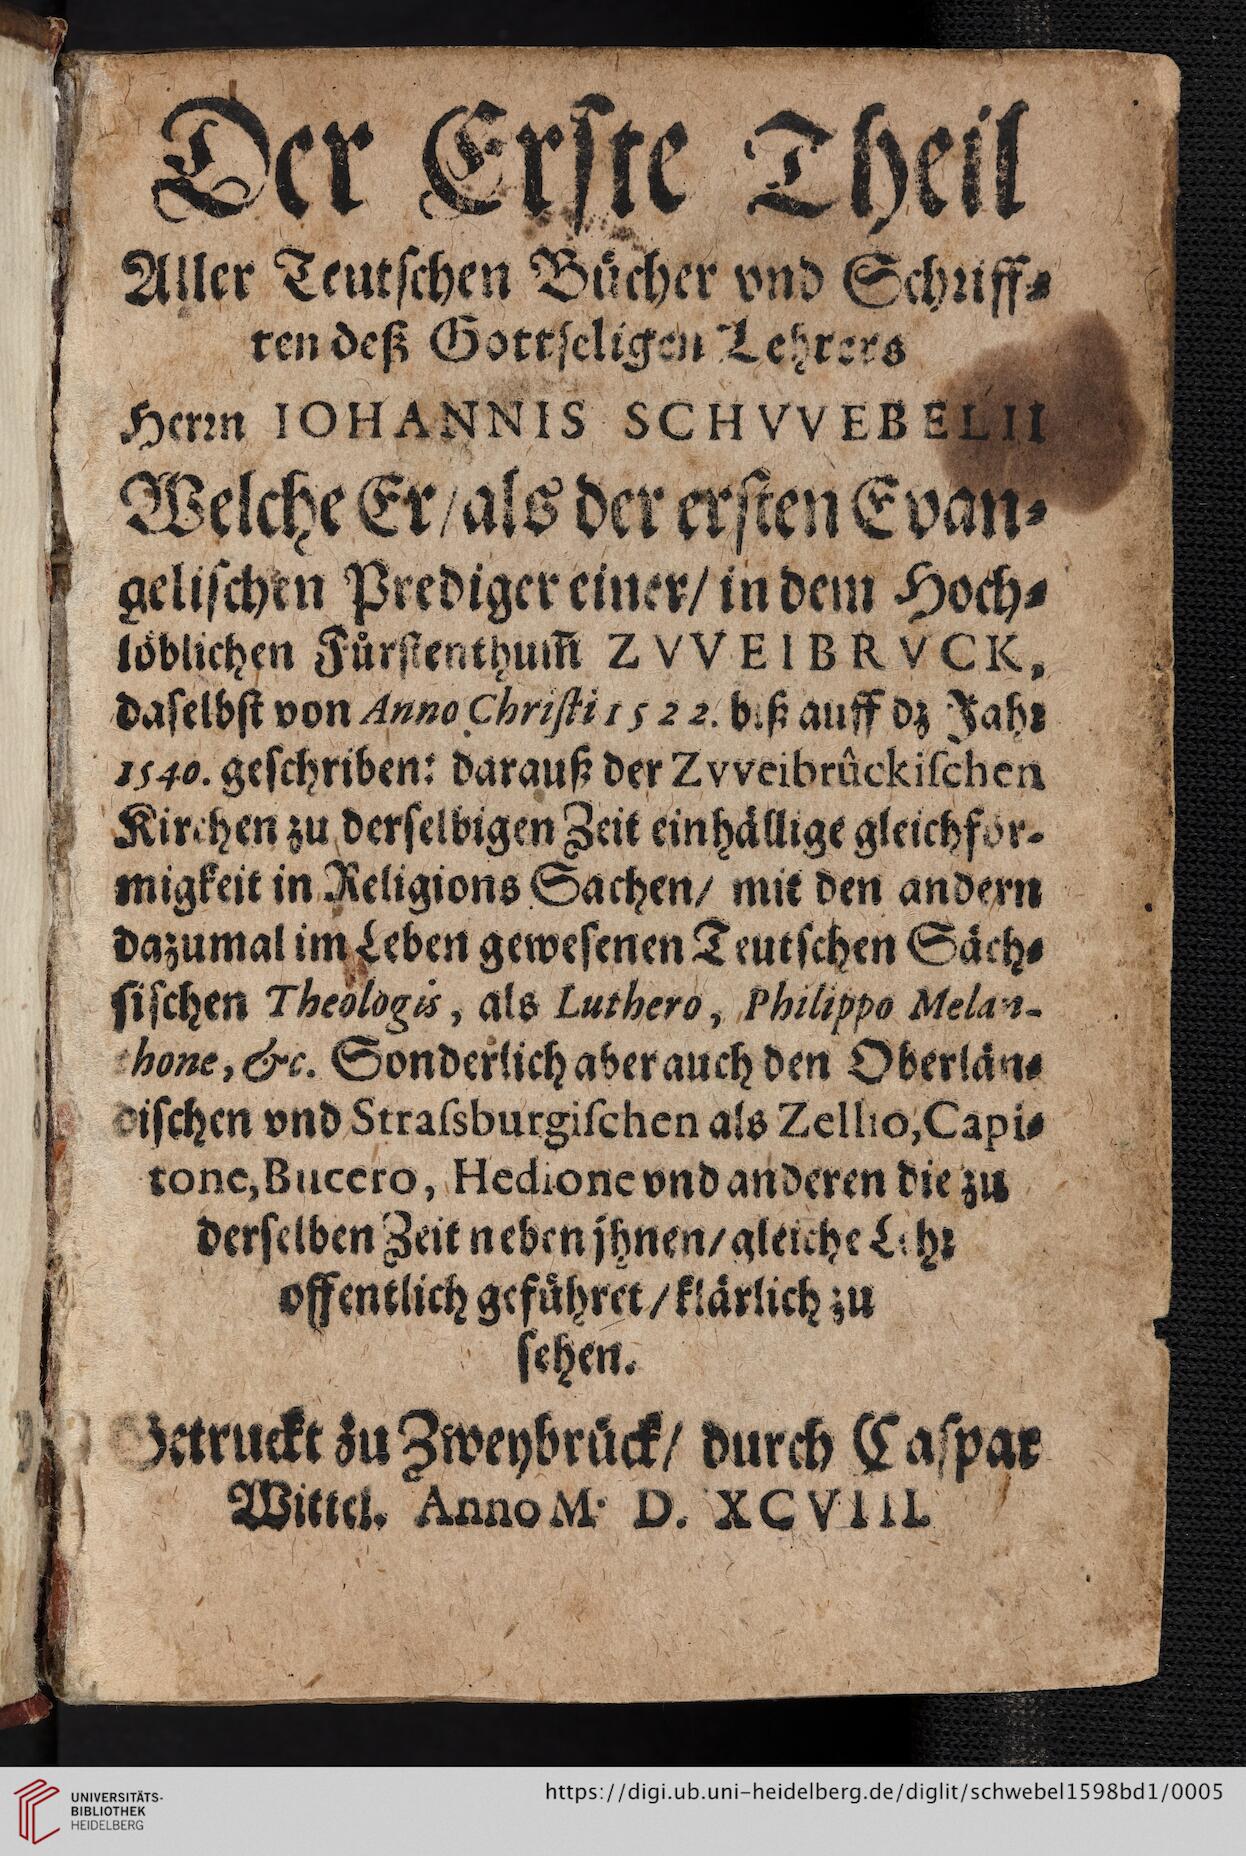 Der Erste Theil
Aller Teutschen Bücher vnd Schriff⸗
ten deß Gottseligen Lehrers
Herꝛn IOHANNIS SCHVVEBELII
Welche Er/als der ersten Evan⸗
gelischen Prediger einer/ in dem Hoch⸗
löblichen Fuͤrstenthum̃ ZVVEIBRVCK,
daselbst von Anno Christi 1522. biß auff dz Jahꝛ
1540. geschriben: darauß der Zvveibrûckiſchen
Kirchen zu derselbigen Zeit einhällige gleichför-
migkeit in Religions Sachen/ mit den andern
dazumal im Leben gewesenen Teutschen Säch⸗
sischen Theologis, als Luthero, Philippo Melan-
thone, &c. Sonderlich aber auch den Oberlän⸗
dischen vnd Straſsburgiſchen als Zellio, Capi⸗
tone, Bucero, Hedione vnd anderen die zu
derselben Zeit neben jhnen/ gleiche Lehꝛ
offentlich geführet/ klärlich zu
sehen.
Getruckt zu Zweybrück/ durch Caspar
Wittel. Anno M. D. XCVIII.
UNIVERSITÄTS-
BIBLIOTHEK
HEIDELBERG
https://digi.ub.uni-heidelberg.de/diglit/schwebel1598bd1/0005